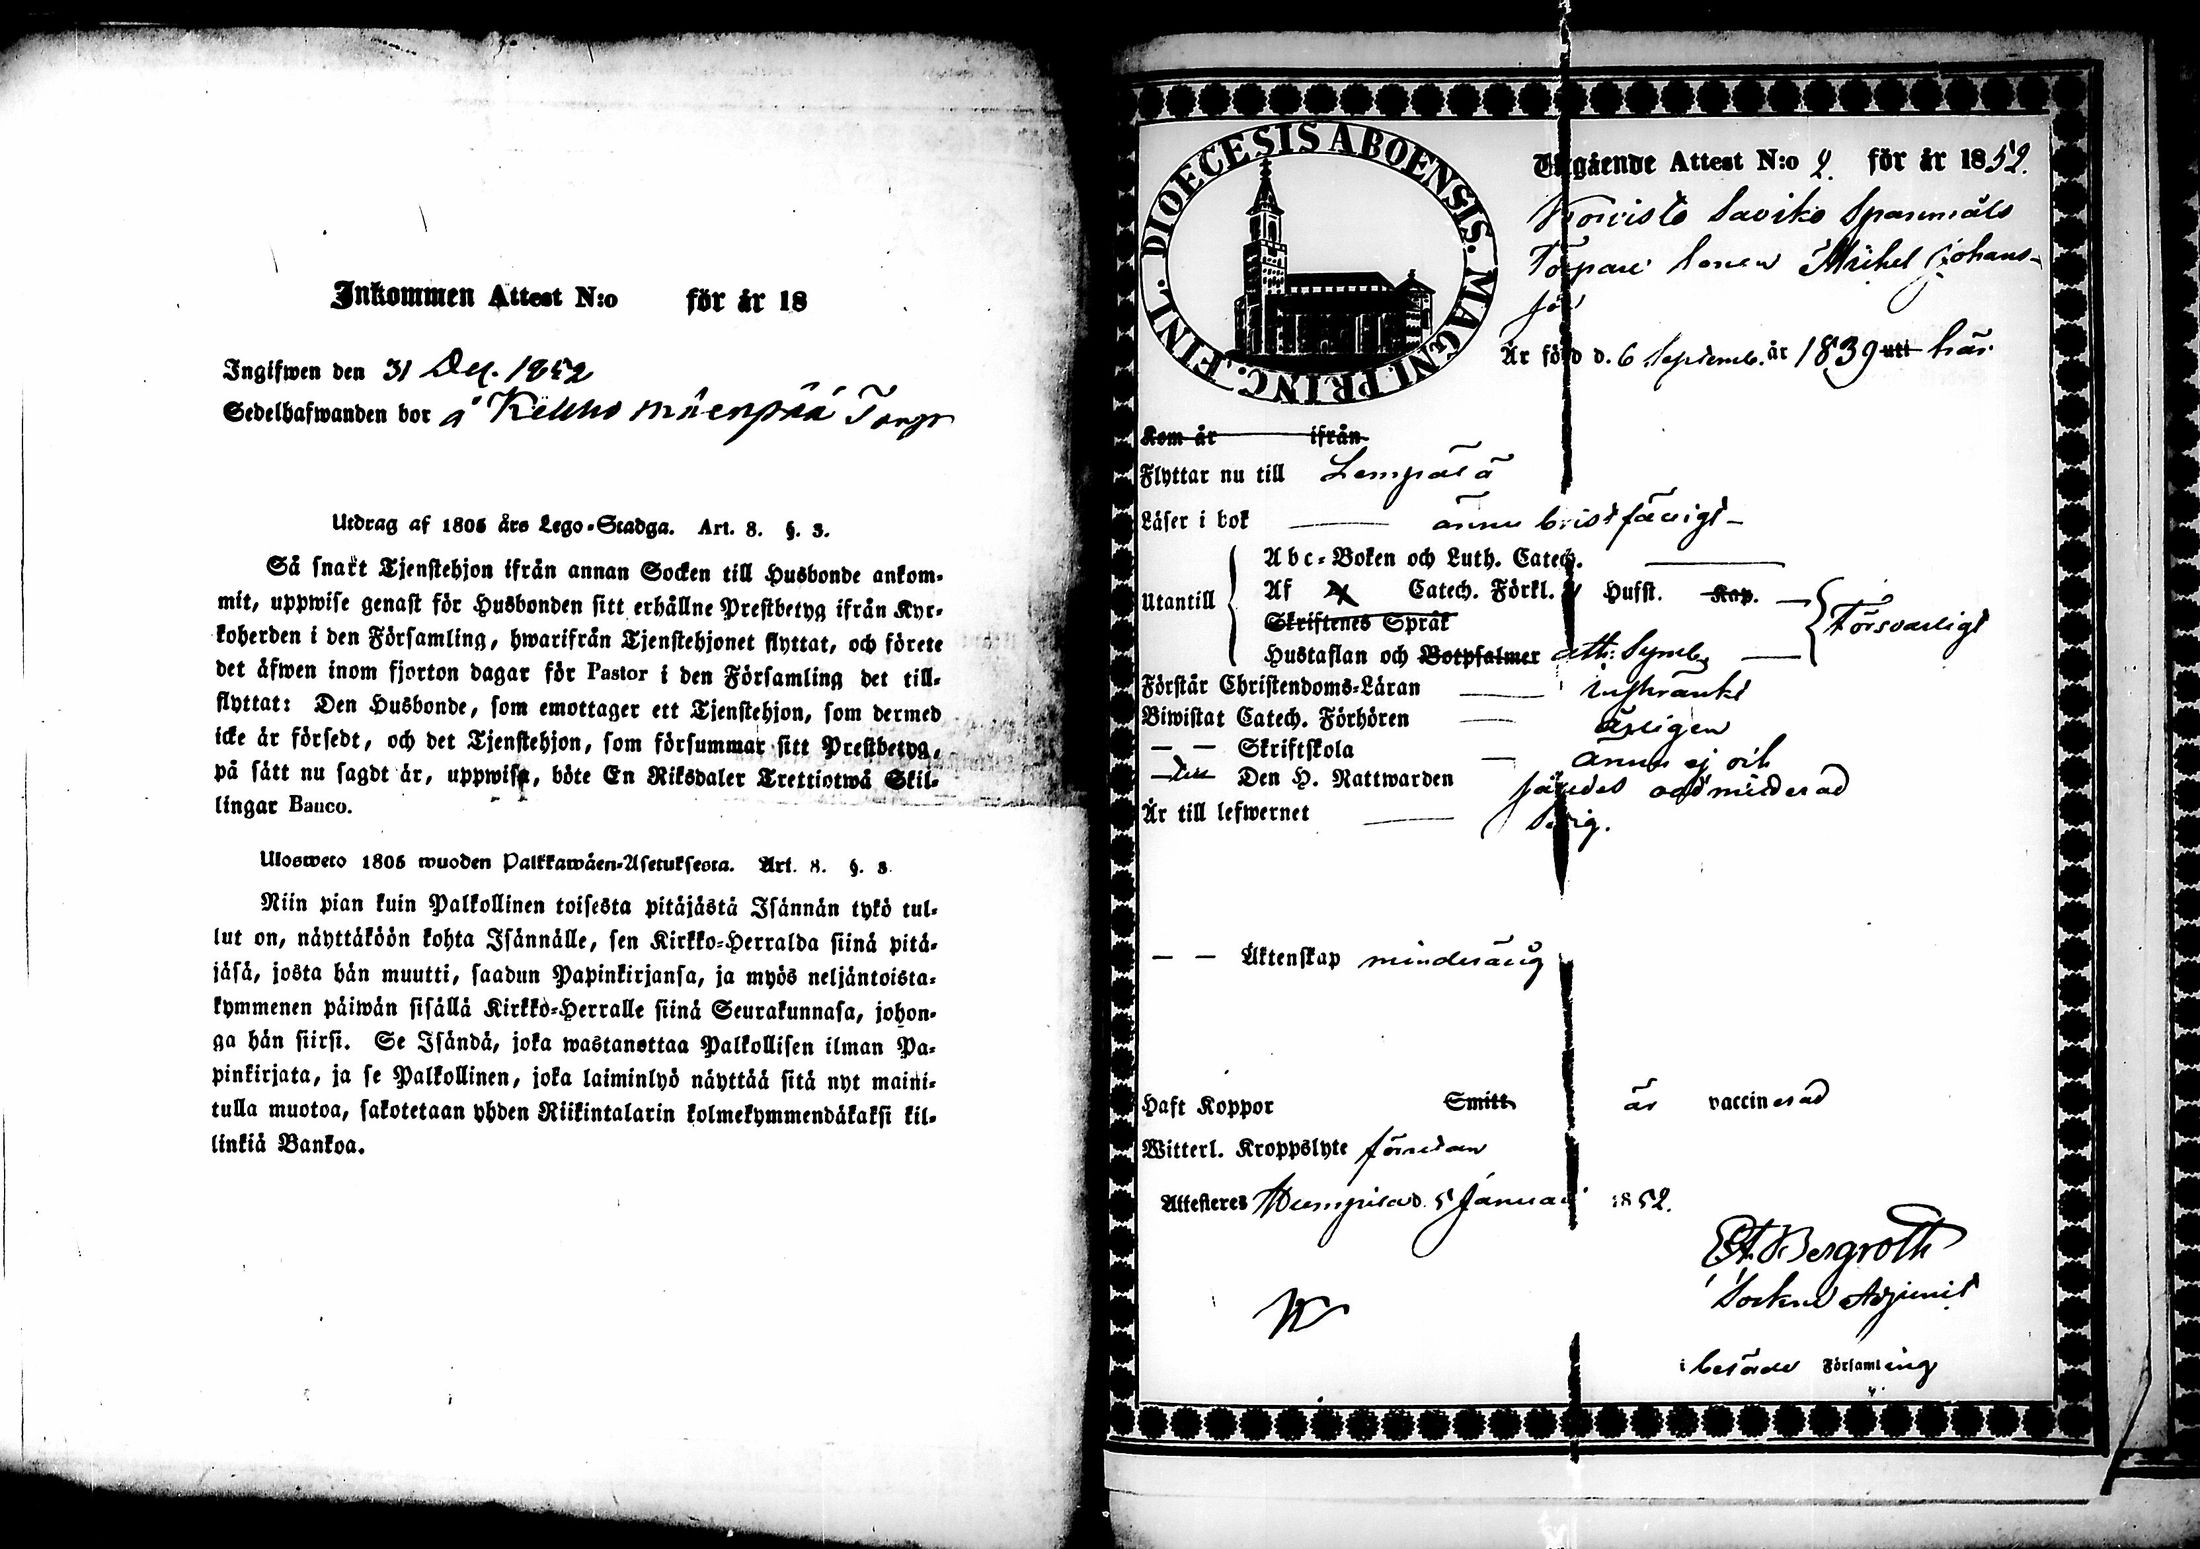 Inkommen Attest N:o för år 18
Ingifwen den 31 Dec. 1852
Sedelhafwanden bor å Mäenpää Torp
Utdrag af 1805 års Lego-Stadga. Art. 8. §. 3.
Så snart Tjenstehjon ifrån annan Socken till Husbonde ankom-
mit, uppwise genast för Husbonden sitt erhållne Prestbetyg ifrån Kyr-
koherden i den Församling, hwarifrån Tjenstehjonet flyttat, och förete
det äfwen inom fjorton dagar för Pastor i den Församling det till-
flyttat: Den Husbonde, som emottager ett Tjenstehjon, som dermed
icke är försedt, och det Tjenstehjon, som försummar sitt Prestbetyg,
på sätt nu sagdt är, uppwisa, böte En Riksdaler Trettiotwå Skil-
lingar Banco.
Ulosweto 1805 wuoden Palkkawäen-Asetuksesta. Art. 8. §. 3.
Niin pian kuin Palkollinen toisesta pitäjästä Isännän tykö tul-
lut on, näyttäköön kohta Isännälle, sen Kirkko-Herralda siinä pitä-
jäsä, josta hän muutti, saadun Papinkirjansa, ja myös neljäntoista-
kymmenen päiwän sisällä Kirkko-Herralle siinä Seurakunnasa, johon-
ga hän siirsi. Se Isändä, joka wastanottaa Palkollisen ilman Pa-
pinkirjata, ja se Palkollinen, joka laiminlyö näyttää sitä nyt maini-
tulla muotoa, sakotetaan yhden Riikintalarin kolmekymmendäkaksi kil-
linkiä Bankoa.
DIOECESIS ABOENSIS. MAGNI. PRINC. FINL.
Utgående Attest N:o 2. för år 1852.
Koivisto Saviko Spannmåls
Torpare Sonen Mikel Johans-
son
Är född d. 6 Septemb. år 1839 uti här
Kom år ifrån
Flyttar nu till Lempälä
Läser i bok ännu bristfäligt
Utantill
Abc-Boken och Luth. Catech.
Af Catech. Förkl. Husst. Kap.
Skriftenes Språk
Försvarligt
Hustaflan och Botpsalmer Ath: Symb.
Förstår Christendoms-Läran inskränkt
Biwistat Catech. Förhören årligen
— — Skriftskola ännu ej och
— Den H. Nattwarden således oadmitterad
Är till lefwernet sedig.
— — Äktenskap minderårig
Haft Koppor Smitt. är vaccinerad
Witterl. Kroppslyte förutan
Attesteres Humppila d. 5 Januari 1852.
Bergroth
Sockne Adjunct
i berörde Församling